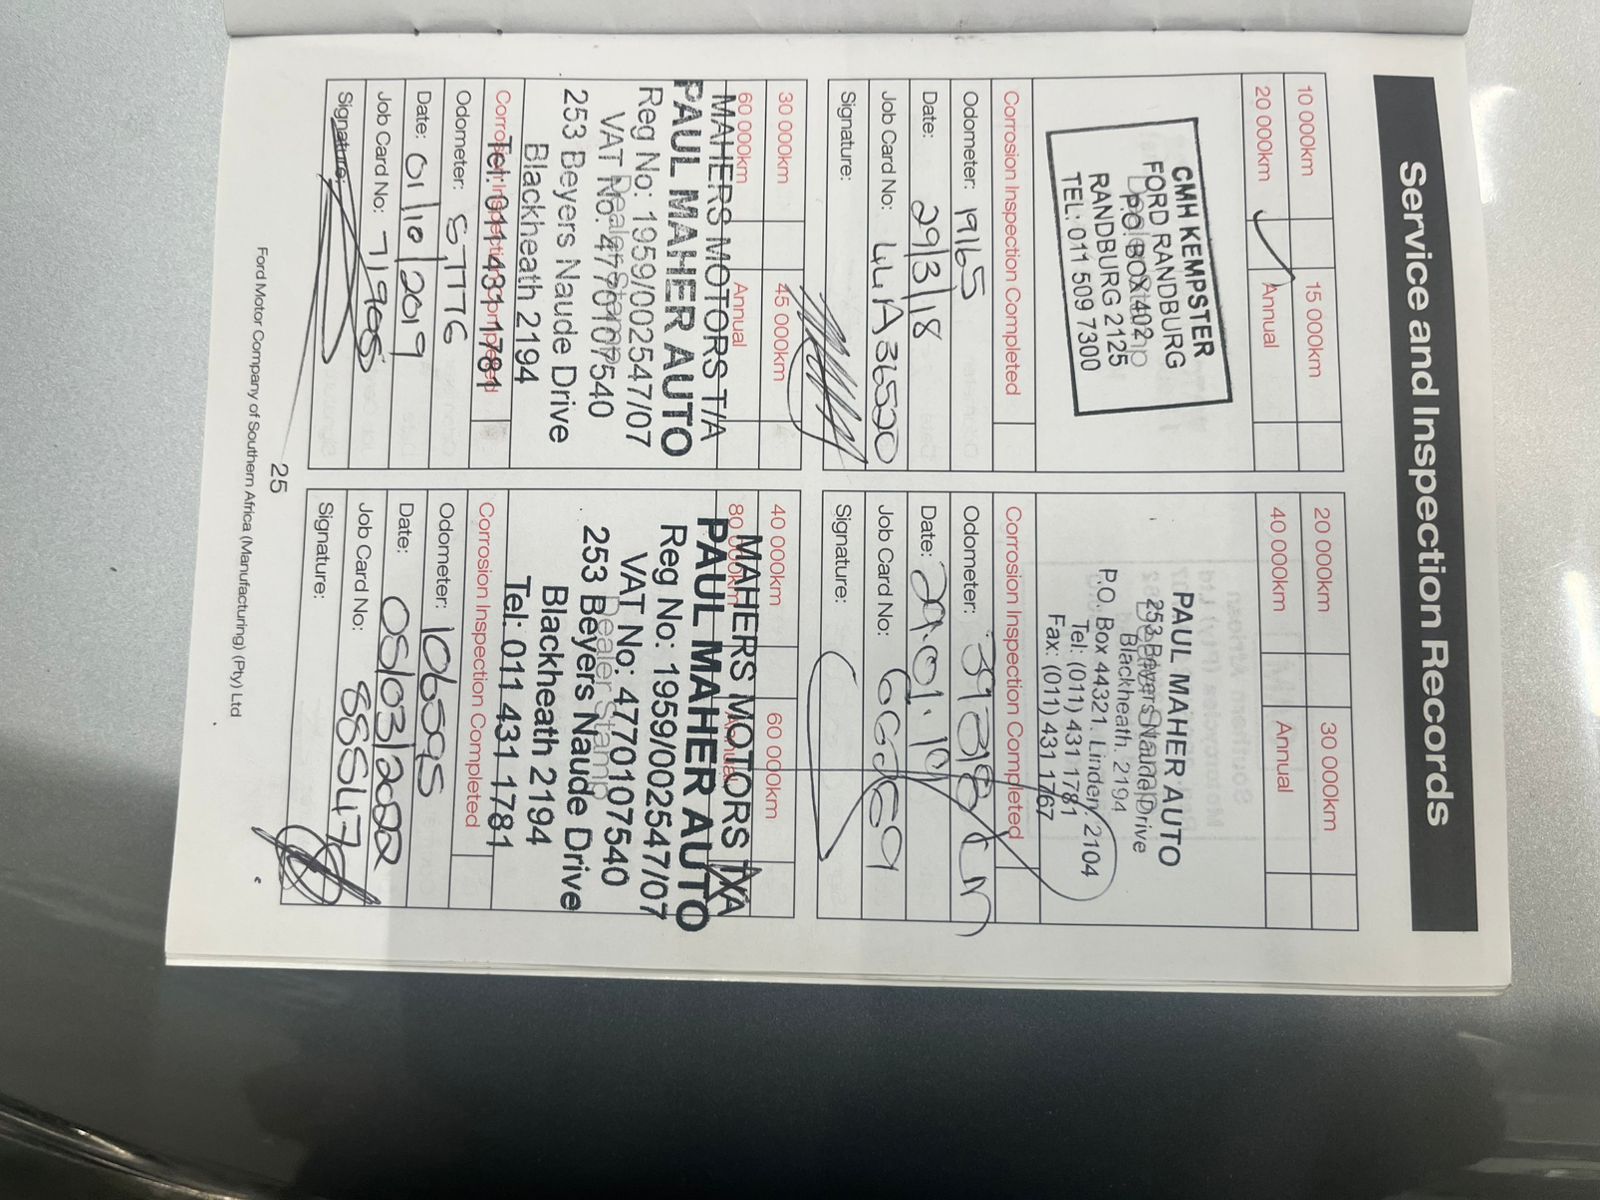 Service and Inspection Records
10 000km
15 000km
20 000km
Annual
CMH KEMPSTER
FORD RANDBURG
P.O. BOX 402
RANDBURG 2125
TEL: 011 509 7300
Corrosion Inspection Completed
Odometer: 19165
Date: 29/3/18
Job Card No: 44A36520
Signature:
20 000km
30 000km
40 000km
Annual
PAUL MAHER AUTO
253 Beyers Naude Drive
Blackheath. 2194
P.O. Box 44321. Linden. 2104
Tel: (011) 431 1781
Fax: (011) 431 1767
Corrosion Inspection Completed
Odometer: 39318km
Date: 29.01.19
Job Card No:
Signature:
30 000km
45 000km
60 000km
Annual
MAHERS MOTORS T/A
PAUL MAHER AUTO
Reg No: 1959/002547/07
VAT No: 4770107540
Dealer Stamp
253 Beyers Naude Drive
Blackheath 2194
Tel: 011 431 1781
Corrosion Inspection Completed
Odometer: 57776
Date: 01/10/2019
Job Card No: 71905
Signature:
40 000km
60 000km
80 000km
Annual
MAHERS MOTORS T/A
PAUL MAHER AUTO
Reg No: 1959/002547/07
VAT No: 4770107540
Dealer Stamp
253 Beyers Naude Drive
Blackheath 2194
Tel: 011 431 1781
Corrosion Inspection Completed
Odometer: 106595
Date: 05/03/2022
Job Card No: 88547
Signature:
25
Ford Motor Company of Southern Africa (Manufacturing) (Pty) Ltd